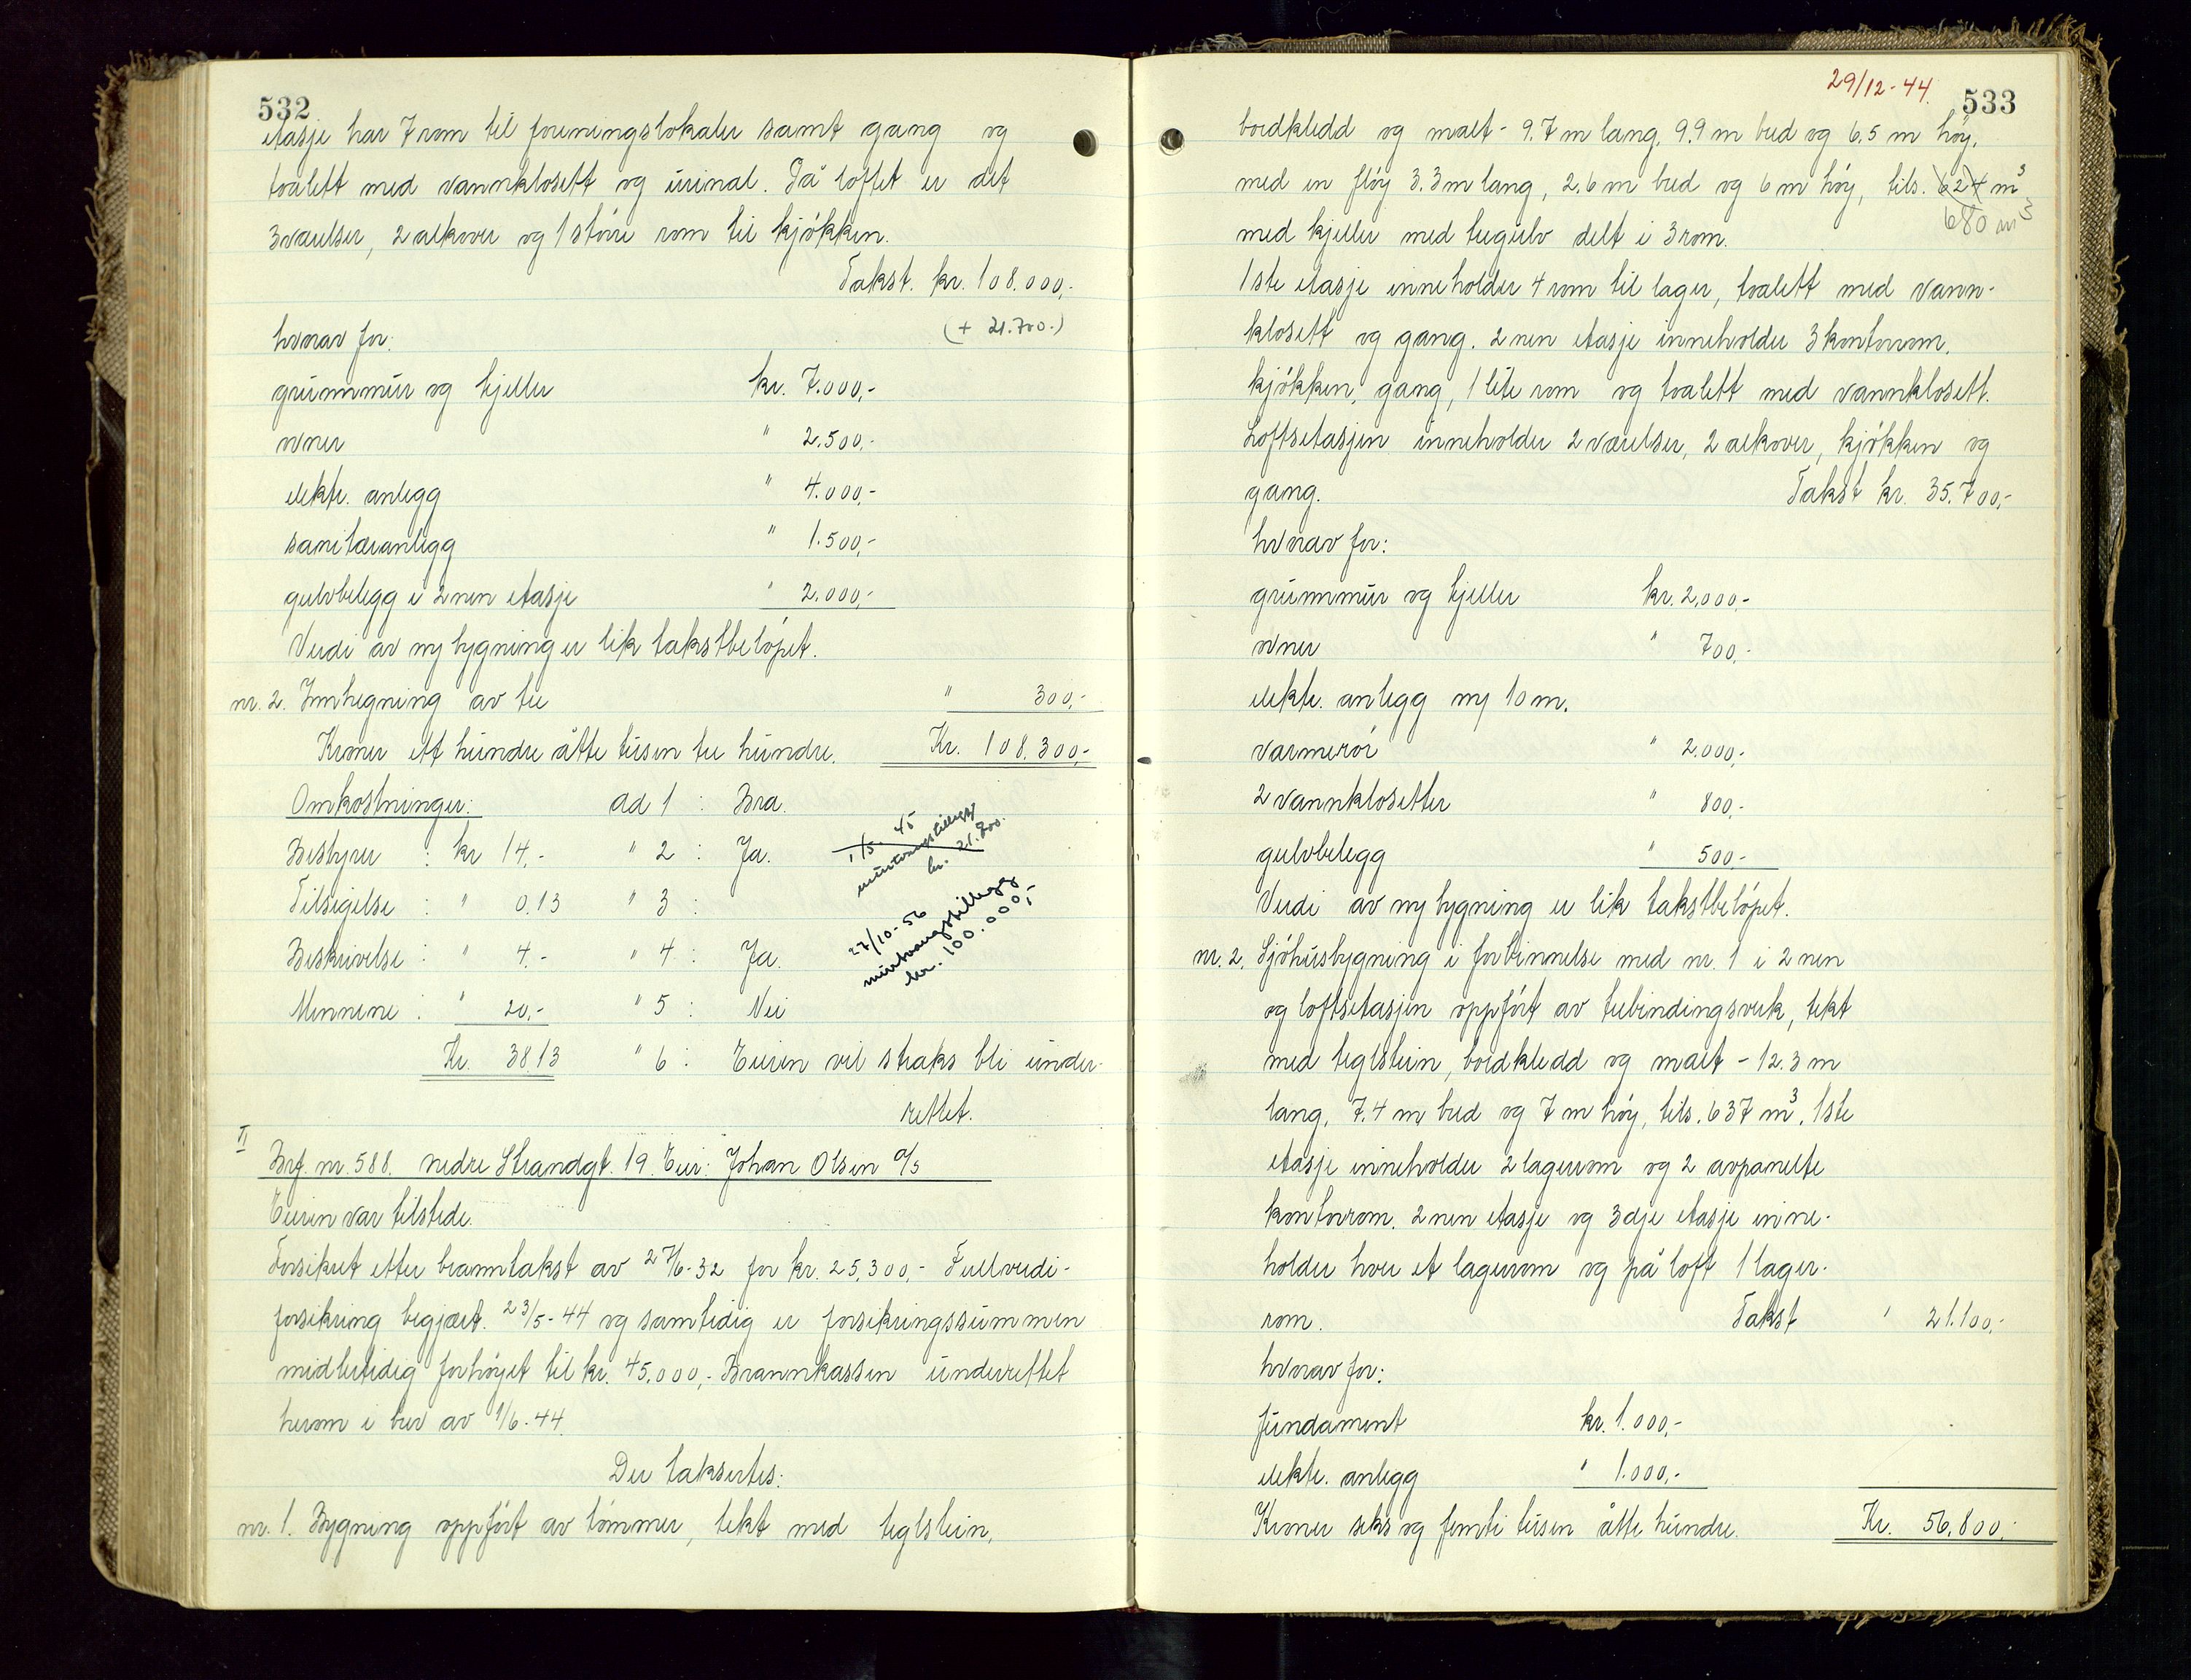 532
etasje har 7 rom til foreningslokaler samt gang og
toalett med vannklosett og urinal. På loftet er det
3 værelser, 2 alkover og 1 större rom til kjökken.
Takst. kr. 108.000,-
(+ 21.700.-)
hvorav for:
grunnmur og kjeller kr. 7.000,-
ovner " 2.500,-
elektr. anlegg " 4.000,-
sanitæranlegg " 1.500,-
gulvbelegg i 2nen etasje " 2.000,-
Verdi av ny bygning er lik takstbelöpet.
nr. 2. Innhegning av tre " 300,-
Kroner ett hundre åtte tusen tre hundre. Kr. 108.300,-
Omkostninger: ad 1 : Bra.
Bestyrer : kr 14,- " 2 : Ja.
Tilsigelse : " 0.13 " 3 :
Beskrivelse : " 4.- " 4 : Ja.
Mennene : " 20,- " 5 : Nei
Kr. 38.13 " 6 : Eieren vil straks bli under-
rettet.
1/5-45
murtvangstillegg
kr. 21.700.
27/10-56
murtvangstillegg
kr. 100.000,-
II
Brf. nr. 588. nedre Strandgt. 19. Eier: Johan Olsen a/s
Eieren var tilstede.
Forsikret etter branntakst av 27/6-32 for kr. 25,300,- Fullverdi-
forsikring begjært. 23/5-44 og samtidig er forsikringssummen
midlertidig forhöjet til kr. 45.000,- Brannkassen underrettet
herom i brev av 1/6-44.
Der taksertes:
nr. 1. Bygning oppfört av tömmer, tekt med teglstein,
29/12-44.
533
bordkledd og malt - 9.7 m lang, 9.9 m bred og 6.5 m höy,
med en flöy 3.3 m lang, 2.6 m bred og 6 m höy, tils. 624 m³
680 m³
med kjeller med tregulv delt i 3 rom.
1ste etasje inneholder 4 rom til lager, toalett med vann-
klosett og gang. 2nen etasje inneholder 3 kontorrom,
kjökken, gang, 1 lite rom og toalett med vannklosett.
Loftsetasjen inneholder 2 værelser, 2 alkover, kjökken og
gang. Takst kr. 35.700,-
hvorav for:
grunnmur og kjeller kr. 2,000,-
ovner " 700,-
elektr. anlegg ny 10 m.
varmerör " 2.000,-
2 vannklosetter " 800,-
gulvbelegg " 500,-
Verdi av ny bygning er lik takstbelöpet.
nr. 2. Sjöhusbygning i forbinnelse med nr. 1 i 2nen
og loftsetasjen oppfört av trebindingsverk, tekt
med teglstein, bordkledd og malt - 12.3 m
lang, 7.4 m bred og 7 m höy, tils. 637 m³. 1ste
etasje inneholder 2 lagerrom og 2 avpanelte
kontorrom. 2nen etasje og 3dje etasje inne-
holder hver et lagerrom og på loft 1 lager-
rom. Takst " 21.100,-
hvorav for:
fundament kr. 1.000,-
elektr. anlegg " 1.000,-
Kroner seks og femti tusen åtte hundre. Kr. 56.800,-